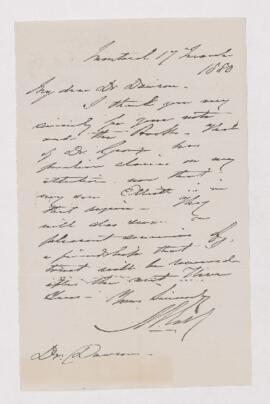 Montreal 17 March
1880
My dear Dr Dawson
I thank you very
sincerely for your note
and the Book - That
of Dr. Grant has
peculiar claims on my
attention now that
my son Elliott is in
that region - They
will also be
pleasant souvenirs of
a friendship that I
trust will be renewed
after the next three
Years - Yours Sincerely
Dr. Dawson -